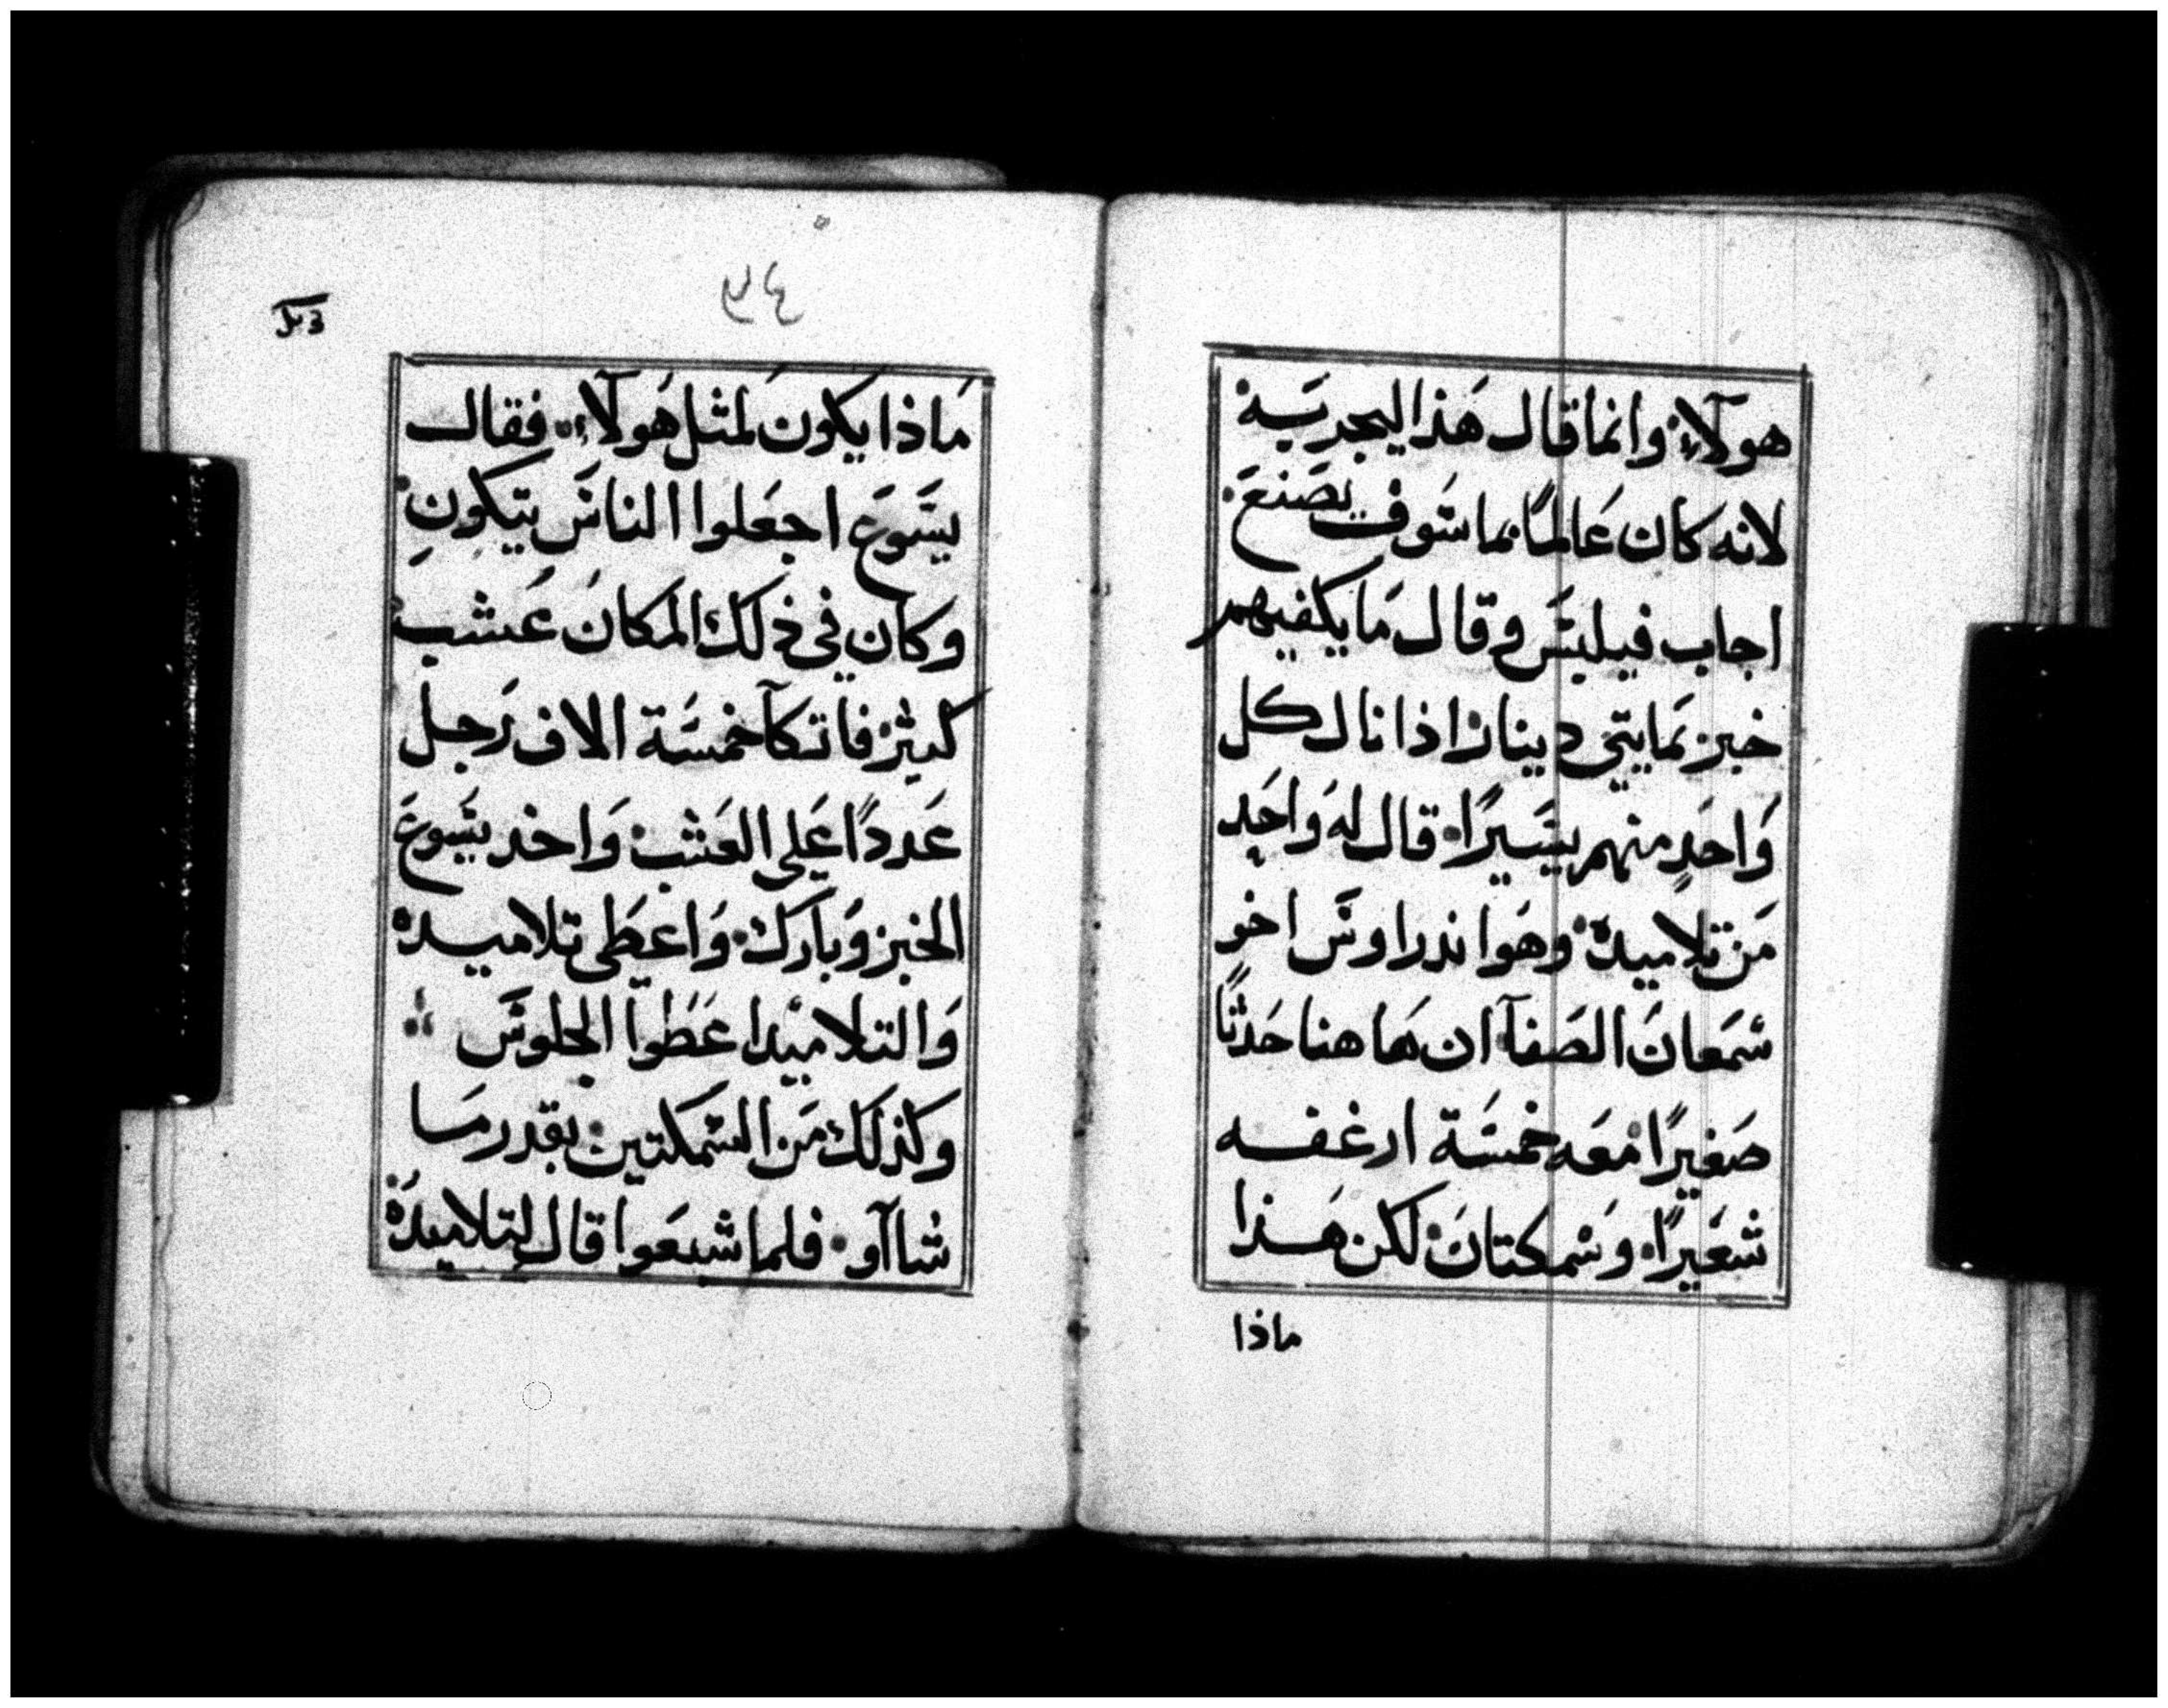 هولآء وانما قال هَذا ليجربَه
لانه كان عَالمًا بما سَوف يصَنعَ
اجاب فيليبَس وقال مَا يكفيهم
خبز بمَايتي دينار اذا نال كل
وَاحَدٍ منهم يسَيرًا قال له وَاحَد
مَن تلاميده وهَوا ندراوسَ اخو
سَمعَانَ الصَفآ ان هَاهنا حَدثًا
صَغيرًا معَه خمسَة ارغفه
شعَيرًا وسَمكتانَ لكن هَذا
ماذا
٣٤
مَاذا يكونَ لمثل هَولآء فقال
يسَوعَ اجعَلوا الناسَ يتكونِ
وكان في ذلك المكانَ عَشب
كثيرَ فاتكآ خمسَة الاف رَجل
عَددًا عَلى العَشب وَاخد يسَوعَ
الخبز وَبارَك وَاعطَى تلاميده
وَالتلاميدا عَطَوا الجلوسَ
وكذلك مَن السَمكتين بقدر مَا
شاآو فلما شبعَوا قال لتلاميدهَ